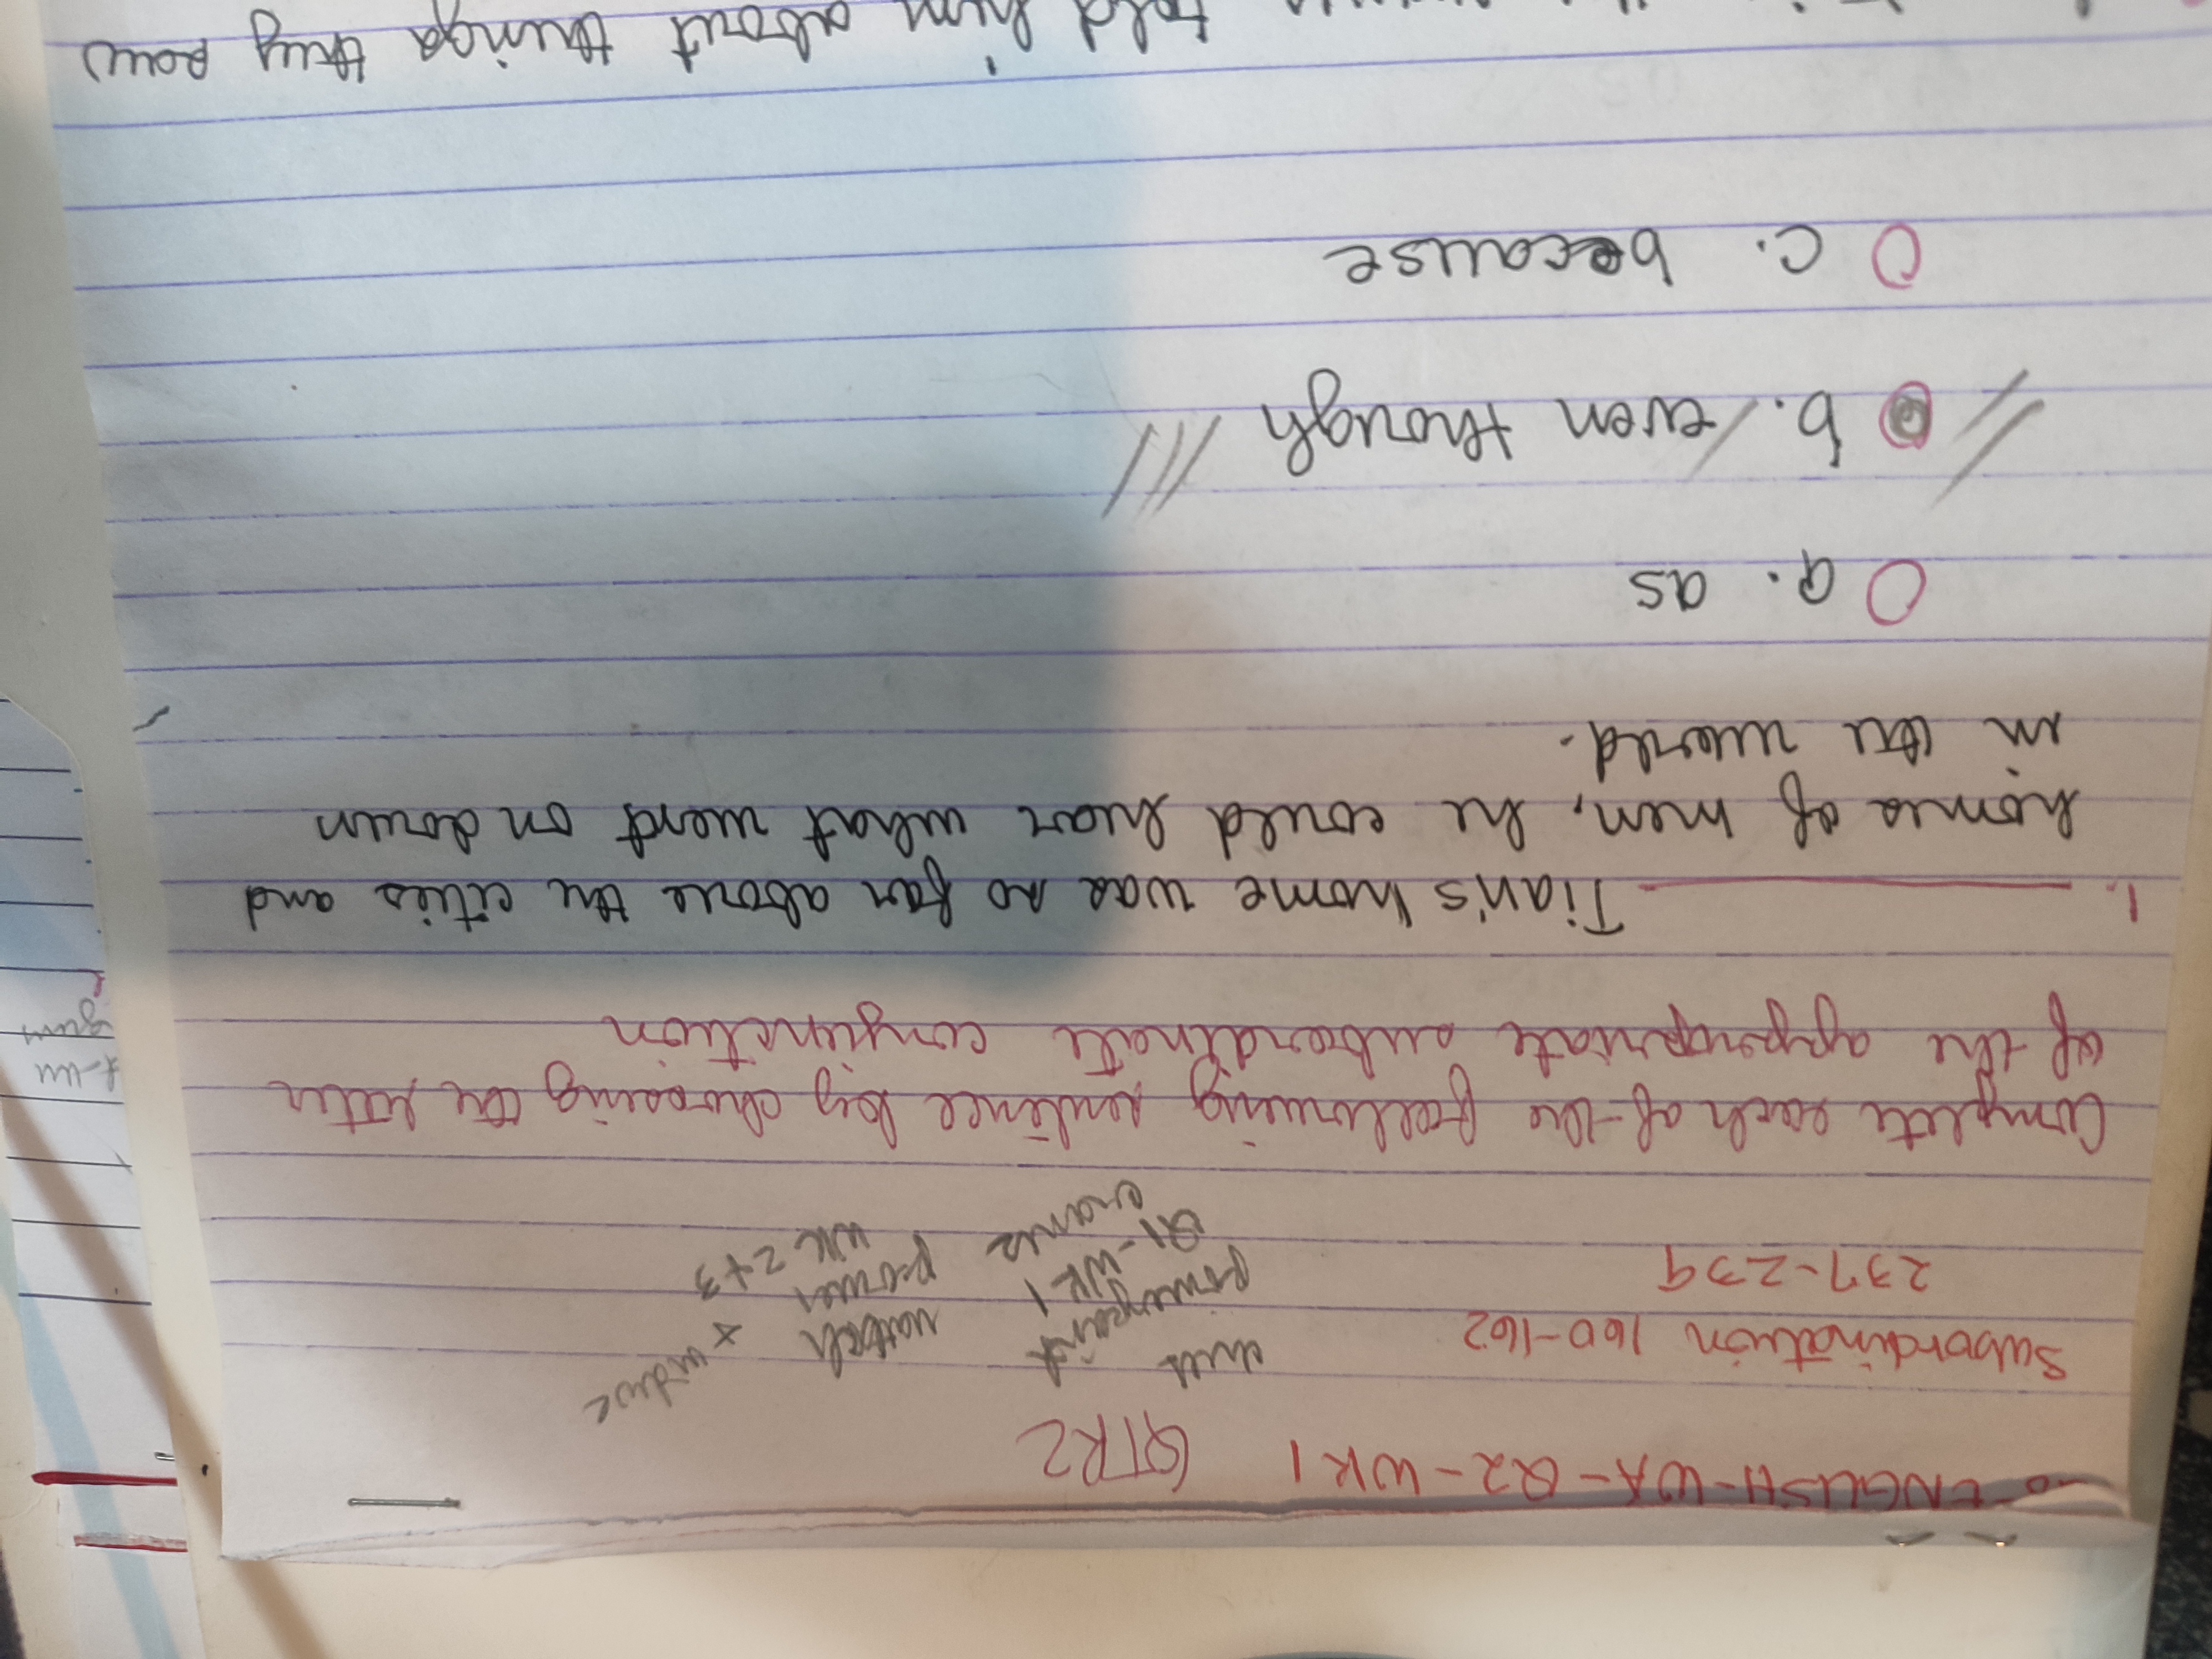 ENGLISH-WA-Q2-WK1 QTR2
Subordination 160-162
237-239
unit
powerpoint
Q1-WK1
exams
watch
power
WK 2+3
Complete each of the following sentence by choosing the letter
of the appropriate subordinate conjunction
1. Tian's home was so far above the cities and
homes of men, he could hear what went on down
in the world.
a. as
b. even though
c. because
told him about things they saw